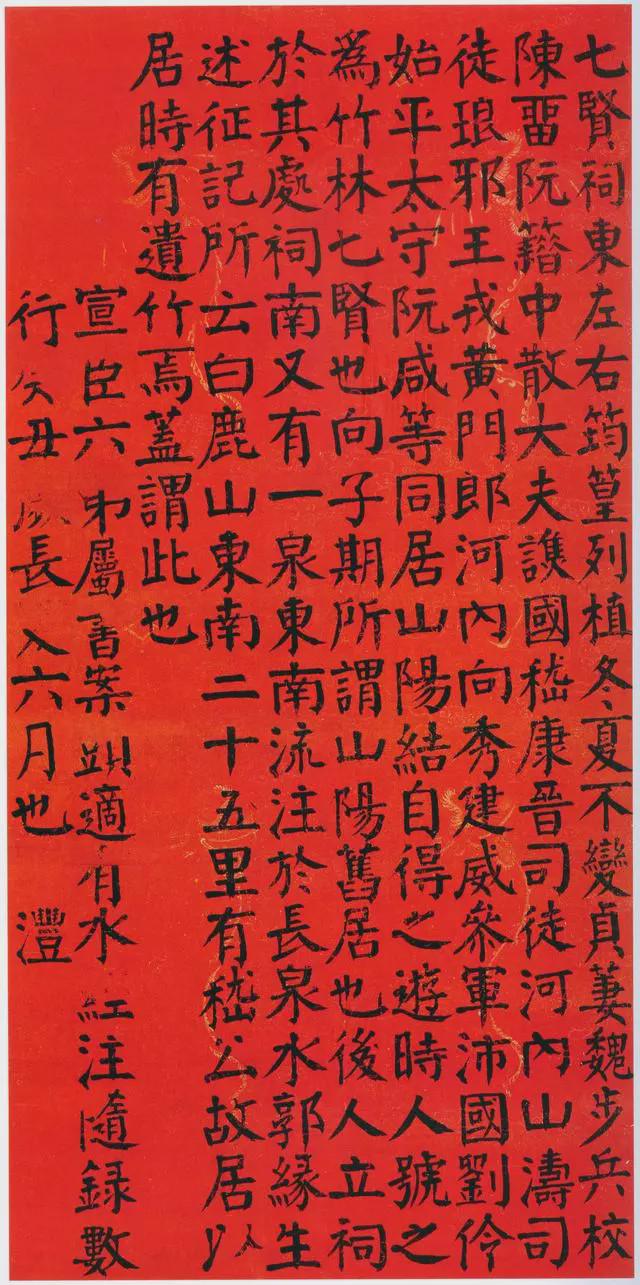 七賢祠東左右筠篁列植冬夏不變貞萋魏步兵校
陳畱阮籍中散大夫譙國嵇康晉司徒河內山濤司
徒琅邪王戎黃門郎河內向秀建威參軍沛國劉伶
始平太守阮咸等同居山陽結自得之遊時人號之
爲竹林七賢也向子期所謂山陽舊居也後人立祠
於其處祠南又有一泉東南流注於長泉水郭緣生
述征記所云白鹿山東南二十五里有嵇公故居以
居時有遺竹焉蓋謂此也
宣臣六弟屬書案適有水注隨録數
行癸丑長六月也 灃